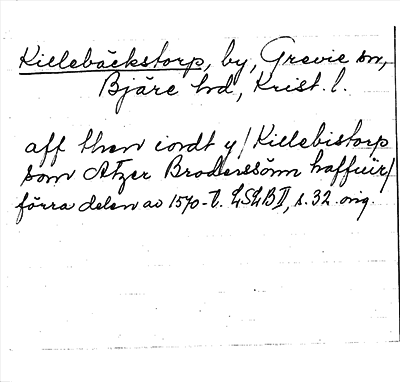 Killebäckstorp, by, Grevie sn,
Bjäre hd, Krist. l.
aff then iordt y/Killebistorp
som Atzer Broderssönn haffuir/
förra delen av 1570-t. LSLB II, s. 32. orig.